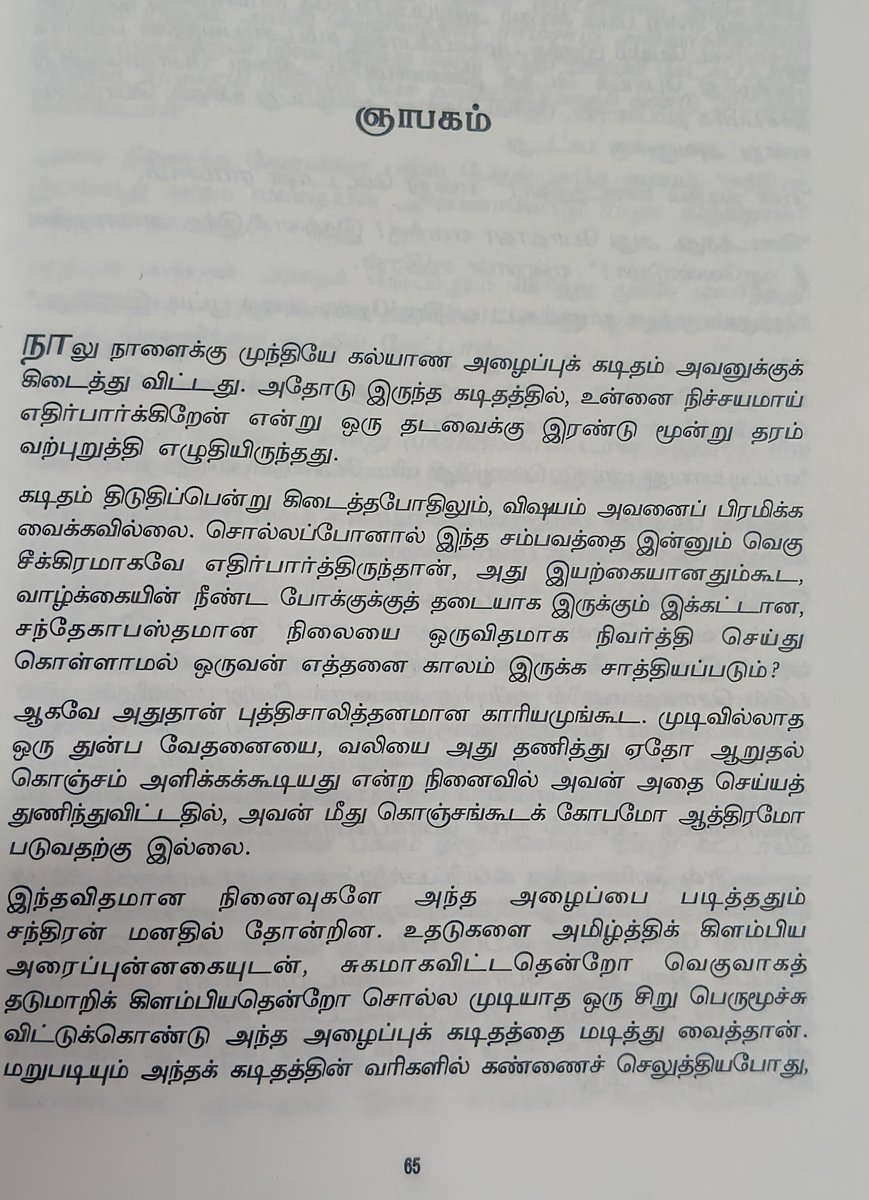 ஞாபகம்
நாலு நாளைக்கு முந்தியே கல்யாண அழைப்புக் கடிதம் அவனுக்குக்
கிடைத்து விட்டது. அதோடு இருந்த கடிதத்தில், உன்னை நிச்சயமாய்
எதிர்பார்க்கிறேன் என்று ஒரு தடவைக்கு இரண்டு மூன்று தரம்
வற்புறுத்தி எழுதியிருந்தது.
கடிதம் திடுதிப்பென்று கிடைத்தபோதிலும், விஷயம் அவனைப் பிரமிக்க
வைக்கவில்லை. சொல்லப்போனால் இந்த சம்பவத்தை இன்னும் வெகு
சீக்கிரமாகவே எதிர்பார்த்திருந்தான், அது இயற்கையானதும்கூட,
வாழ்க்கையின் நீண்ட போக்குக்குத் தடையாக இருக்கும் இக்கட்டான,
சந்தேகாபஸ்தமான நிலையை ஒருவிதமாக நிவர்த்தி செய்து
கொள்ளாமல் ஒருவன் எத்தனை காலம் இருக்க சாத்தியப்படும்?
ஆகவே அதுதான் புத்திசாலித்தனமான காரியமுங்கூட. முடிவில்லாத
ஒரு துன்ப வேதனையை, வலியை அது தணித்து ஏதோ ஆறுதல்
கொஞ்சம் அளிக்கக்கூடியது என்ற நினைவில் அவன் அதை செய்யத்
துணிந்துவிட்டதில், அவன் மீது கொஞ்சங்கூடக் கோபமோ ஆத்திரமோ
படுவதற்கு இல்லை.
இந்தவிதமான நினைவுகளே அந்த அழைப்பை படித்ததும்
சந்திரன் மனதில் தோன்றின. உதடுகளை அமிழ்த்திக் கிளம்பிய
அரைப்புன்னகையுடன், சுகமாகவிட்டதென்றோ வெகுவாகத்
தடுமாறிக் கிளம்பியதென்றோ சொல்ல முடியாத ஒரு சிறு பெருமூச்சு
விட்டுக்கொண்டு அந்த அழைப்புக் கடிதத்தை மடித்து வைத்தான்.
மறுபடியும் அந்தக் கடிதத்தின் வரிகளில் கண்ணைச் செலுத்தியபோது,
65